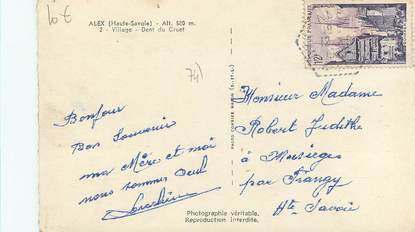 10 €
ALEX (Haute-Savoie) - Alt. 500 m.
2 - Village - Dent du Cruet
74)
12F
Bonjour
Bon Souvenir
ma Mère et moi
nous sommes seul
Monsieur Madame
Robert Judithe
à Musièges
par Frangy
Hte Savoie
Photographie véritable.
Reproduction interdite.